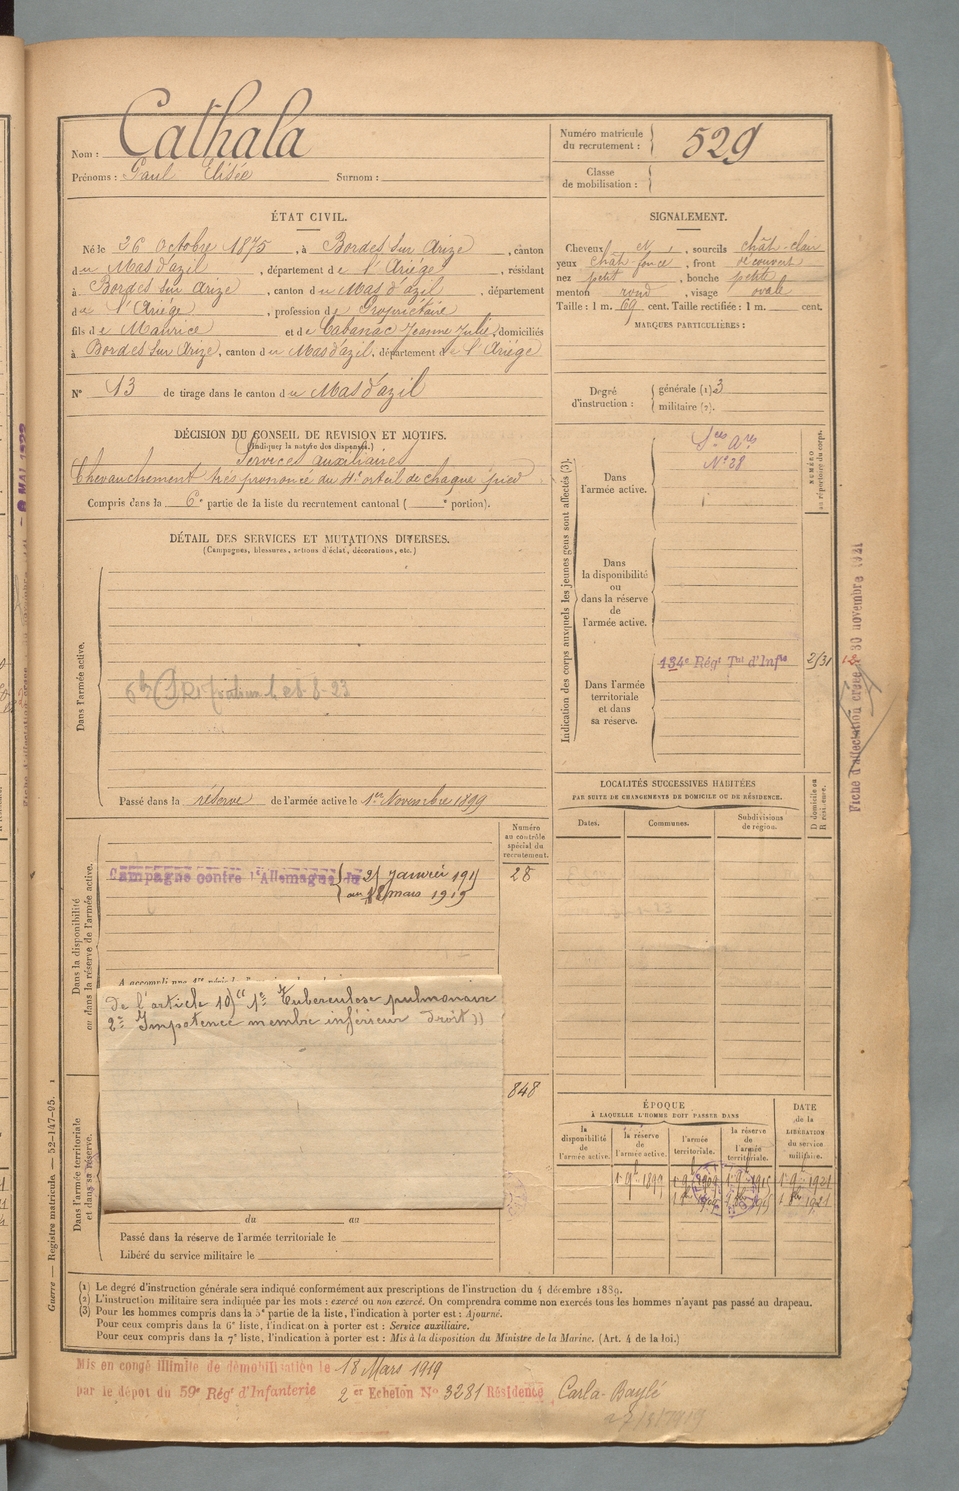 Nom : Cathala
Prénoms : Paul Elisée Surnom :
Numéro matricule du recrutement : 529
Classe de mobilisation :
ÉTAT CIVIL.
Né le 26 Octobre 1875, à Bordes sur Arize, canton
du Mas d'azil, département de l'Ariége, résidant
à Bordes sur Arize, canton du Mas d'azil, département
de l'Ariége, profession de Propriétaire
fils de Maurice et de Cabanac Jeanne Julie, domiciliés
à Bordes sur Arize, canton du Mas d'azil, département de l'Ariége
N° 13 de tirage dans le canton du Mas d'azil
SIGNALEMENT.
Cheveux et, sourcils chât-clair
yeux chât-foncé, front découvert
nez petit, bouche petite
menton rond, visage ovale
Taille : 1 m. 69 cent. Taille rectifiée : 1 m. cent.
MARQUES PARTICULIÈRES :
Degré d'instruction : générale (1) 3
militaire (2).
DÉCISION DU CONSEIL DE REVISION ET MOTIFS.
(Indiquer la nature des dispenses.)
Services auxiliaires
Chevauchement très prononcé du 4e orteil de chaque pied
Compris dans la 6e partie de la liste du recrutement cantonal ( e portion).
DÉTAIL DES SERVICES ET MUTATIONS DIVERSES.
(Campagnes, blessures, actions d'éclat, décorations, etc.)
Dans l'armée active.
Passé dans la réserve de l'armée active le 1er Novembre 1899
Indication des corps auxquels les jeunes gens sont affectés (3).
NUMÉRO au répertoire du corps.
Dans l'armée active.
Sces Ares
N° 38
Dans la disponibilité ou dans la réserve de l'armée active.
Dans l'armée territoriale et dans sa réserve.
134e Régt Tal d'Infie
2/31
Fiche d'affectation créée le 30 novembre 1921
LOCALITÉS SUCCESSIVES HABITÉES
PAR SUITE DE CHANGEMENTS DE DOMICILE OU DE RÉSIDENCE.
Dates. Communes. Subdivisions de région.
D domicile ou R résidence.
Dans la disponibilité ou dans la réserve de l'armée active.
Numéro au contrôle spécial du recrutement.
28
Campagne contre l'Allemagne du 21 janvier 1915
au 12 mars 1919
De l'article 10) "1e Tuberculose pulmonaire
2e Impotence membre inférieur droit))
848
Dans l'armée territoriale et dans sa réserve.
du au
Passé dans la réserve de l'armée territoriale le
Libéré du service militaire le
ÉPOQUE
À LAQUELLE L'HOMME DOIT PASSER DANS
la disponibilité de l'armée active.
la réserve de l'armée active.
l'armée territoriale.
la réserve de l'armée territoriale.
DATE de la LIBÉRATION du service militaire.
Guerre — Registre matricule. — 52-147-95. 1
(1) Le degré d'instruction générale sera indiqué conformément aux prescriptions de l'instruction du 4 décembre 1889.
(2) L'instruction militaire sera indiquée par les mots : exercé ou non exercé. On comprendra comme non exercés tous les hommes n'ayant pas passé au drapeau.
(3) Pour les hommes compris dans la 5e partie de la liste, l'indication à porter est : Ajourné.
Pour ceux compris dans la 6e liste, l'indication à porter est : Service auxiliaire.
Pour ceux compris dans la 7e liste, l'indication à porter est : Mis à la disposition du Ministre de la Marine. (Art. 4 de la loi.)
Mis en congé illimité de démobilisation le 18 Mars 1919
par le dépôt du 59e Régt d'Infanterie 2 er Echelon N° 3281 Résidence Carla-Baylé